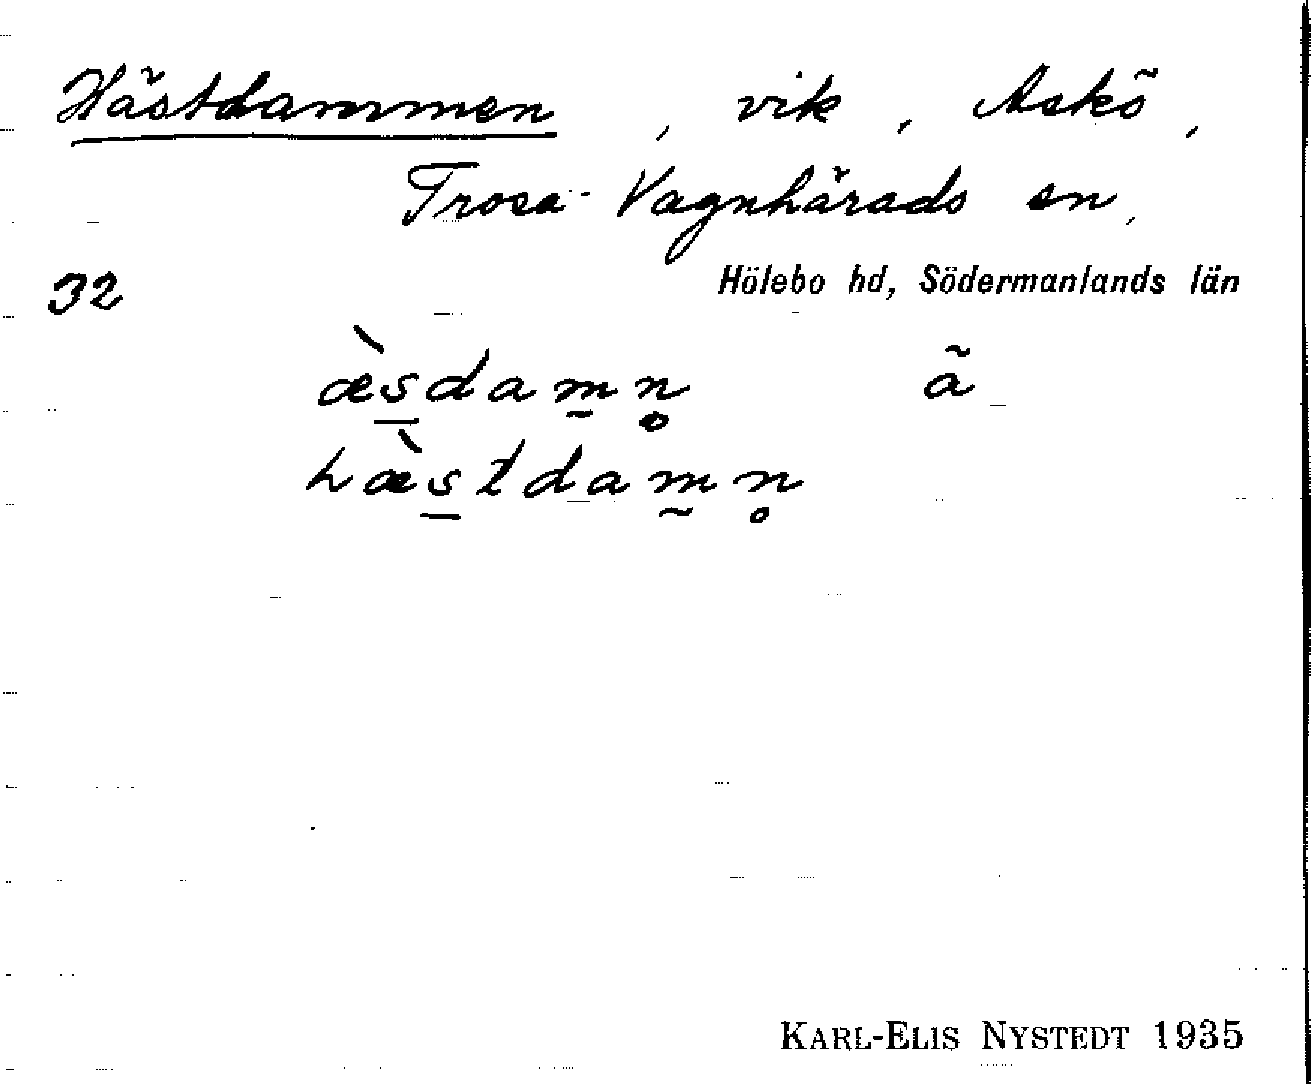 Hästdammen, vik, Askö,
Trosa-Vagnhärads sn,
32 Hölebo hd, Södermanlands län
æ̀s̲dam̰n̥ ã
hæ̀s̲tdam̰n̥
KARL-ELIS NYSTEDT 1935